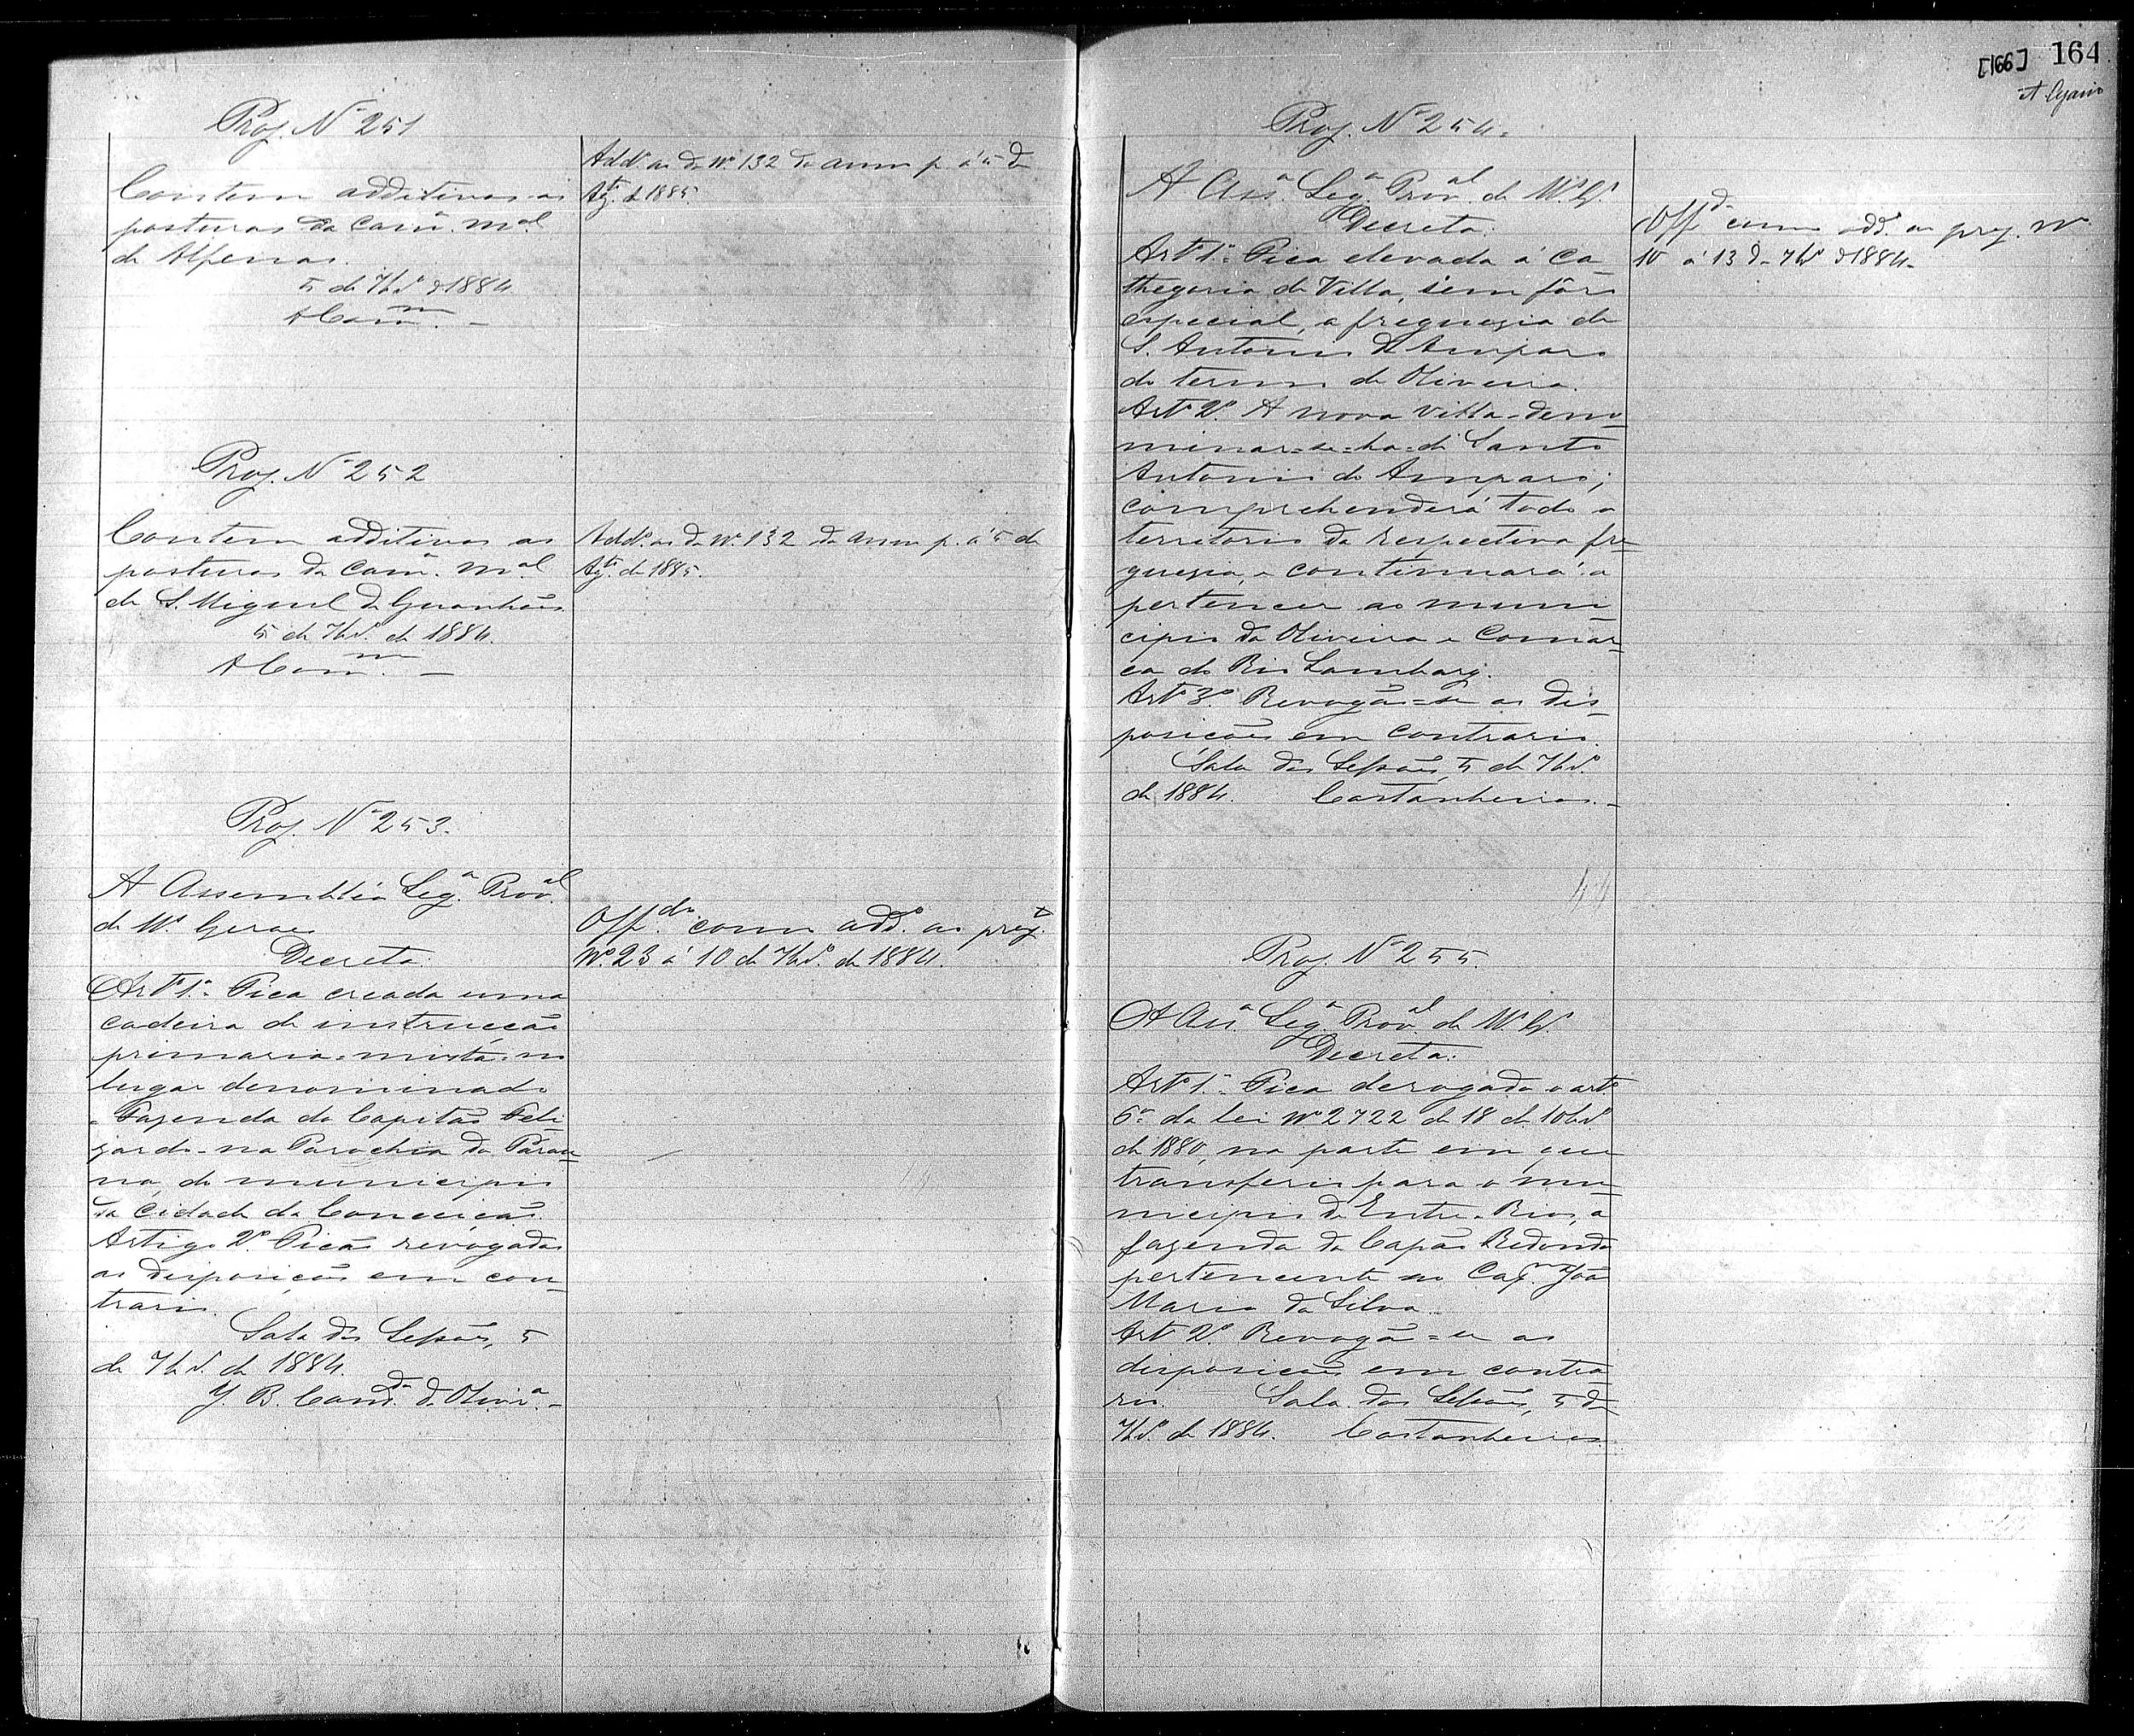 Proj. Nº 251
Contem additivos ás
posturas da Camª. mal.
de Alfenas.
5 de 7brº. d 1884
A Camm. –
Addº. ao de Nº. 132 do anno p. á 5 de
Agto. d 1885.
Proj. Nº 252
Contem additivos as
posturas da Camª. mal.
de S. Miguel de Guanhães
5 de 7brº. de 1884.
A Comm. –
Addº. ao de Nº. 132 do anno p. á 5 de
Agto. de 1885.
Proj. Nº 253.
A Assembléa Legª. Proval.
de Ms. Geraes
Decreta:
Artº 1º. Fica creada uma
cadeira de instrucção
primaria = mixta = no
lugar denominado
= Fazenda do Capitão Feli-
zardo - na Parochia do Parau-
na, do municipio
da Cidade da Conceição.
Artigo 2º. Ficão revogadas
as disposições em con-
trario.
Sala das Sessões, 5
de 7brº. de 1884.
J. B. Candº. d. Olivrª. –
Offdo. como addº. ao proj.
Nº. 23 á 10 de 7brº. de 1884.
[166] 164
Proj. Nº 254.
A Assª. Legª. Proval. de Ms. Gs.
Decreta:
Artº 1º. Fica elevada á Ca-
thegoria de Villa, sem fôro
especial, a freguezia de
S. Antonio do Amparo
do termo de Oliveira.
Artº 2º. A nova villa - deno-
minar=se=ha=de Santo
Antonio do Amparo;
comprehenderá todo o
territorio da respectiva fre-
guezia, e continuará a
pertencer ao muni-
cipio da Oliveira e Comar-
ca do Rio Lambary.
Artº 3º. Revogão=se as dis-
posições em contrario.
Sala das Sessões, 5 de 7brº.
de 1884. Castanheiras. –
Offdo como addº. ao proj. Nº
10 á 13 de 7brº d 1884.
Proj. Nº 255.
A Assª. Legª. Proval. de Ms. Gs.
Decreta:
Artº 1º. Fica derogado o artº
6º. da lei Nº 2722 de 18 de 10brº.
de 1880, na parte em que
transferio para o mu-
nicipio de Entre-Rios, a
fazenda do Capão Redondo
pertencente ao Capm. João
Maria da Silva.
Artº 2º. Revogão=se as
disposições em contra-
rio. Sala das Sessões, 5 de
7brº. de 1884. Castanheiras.